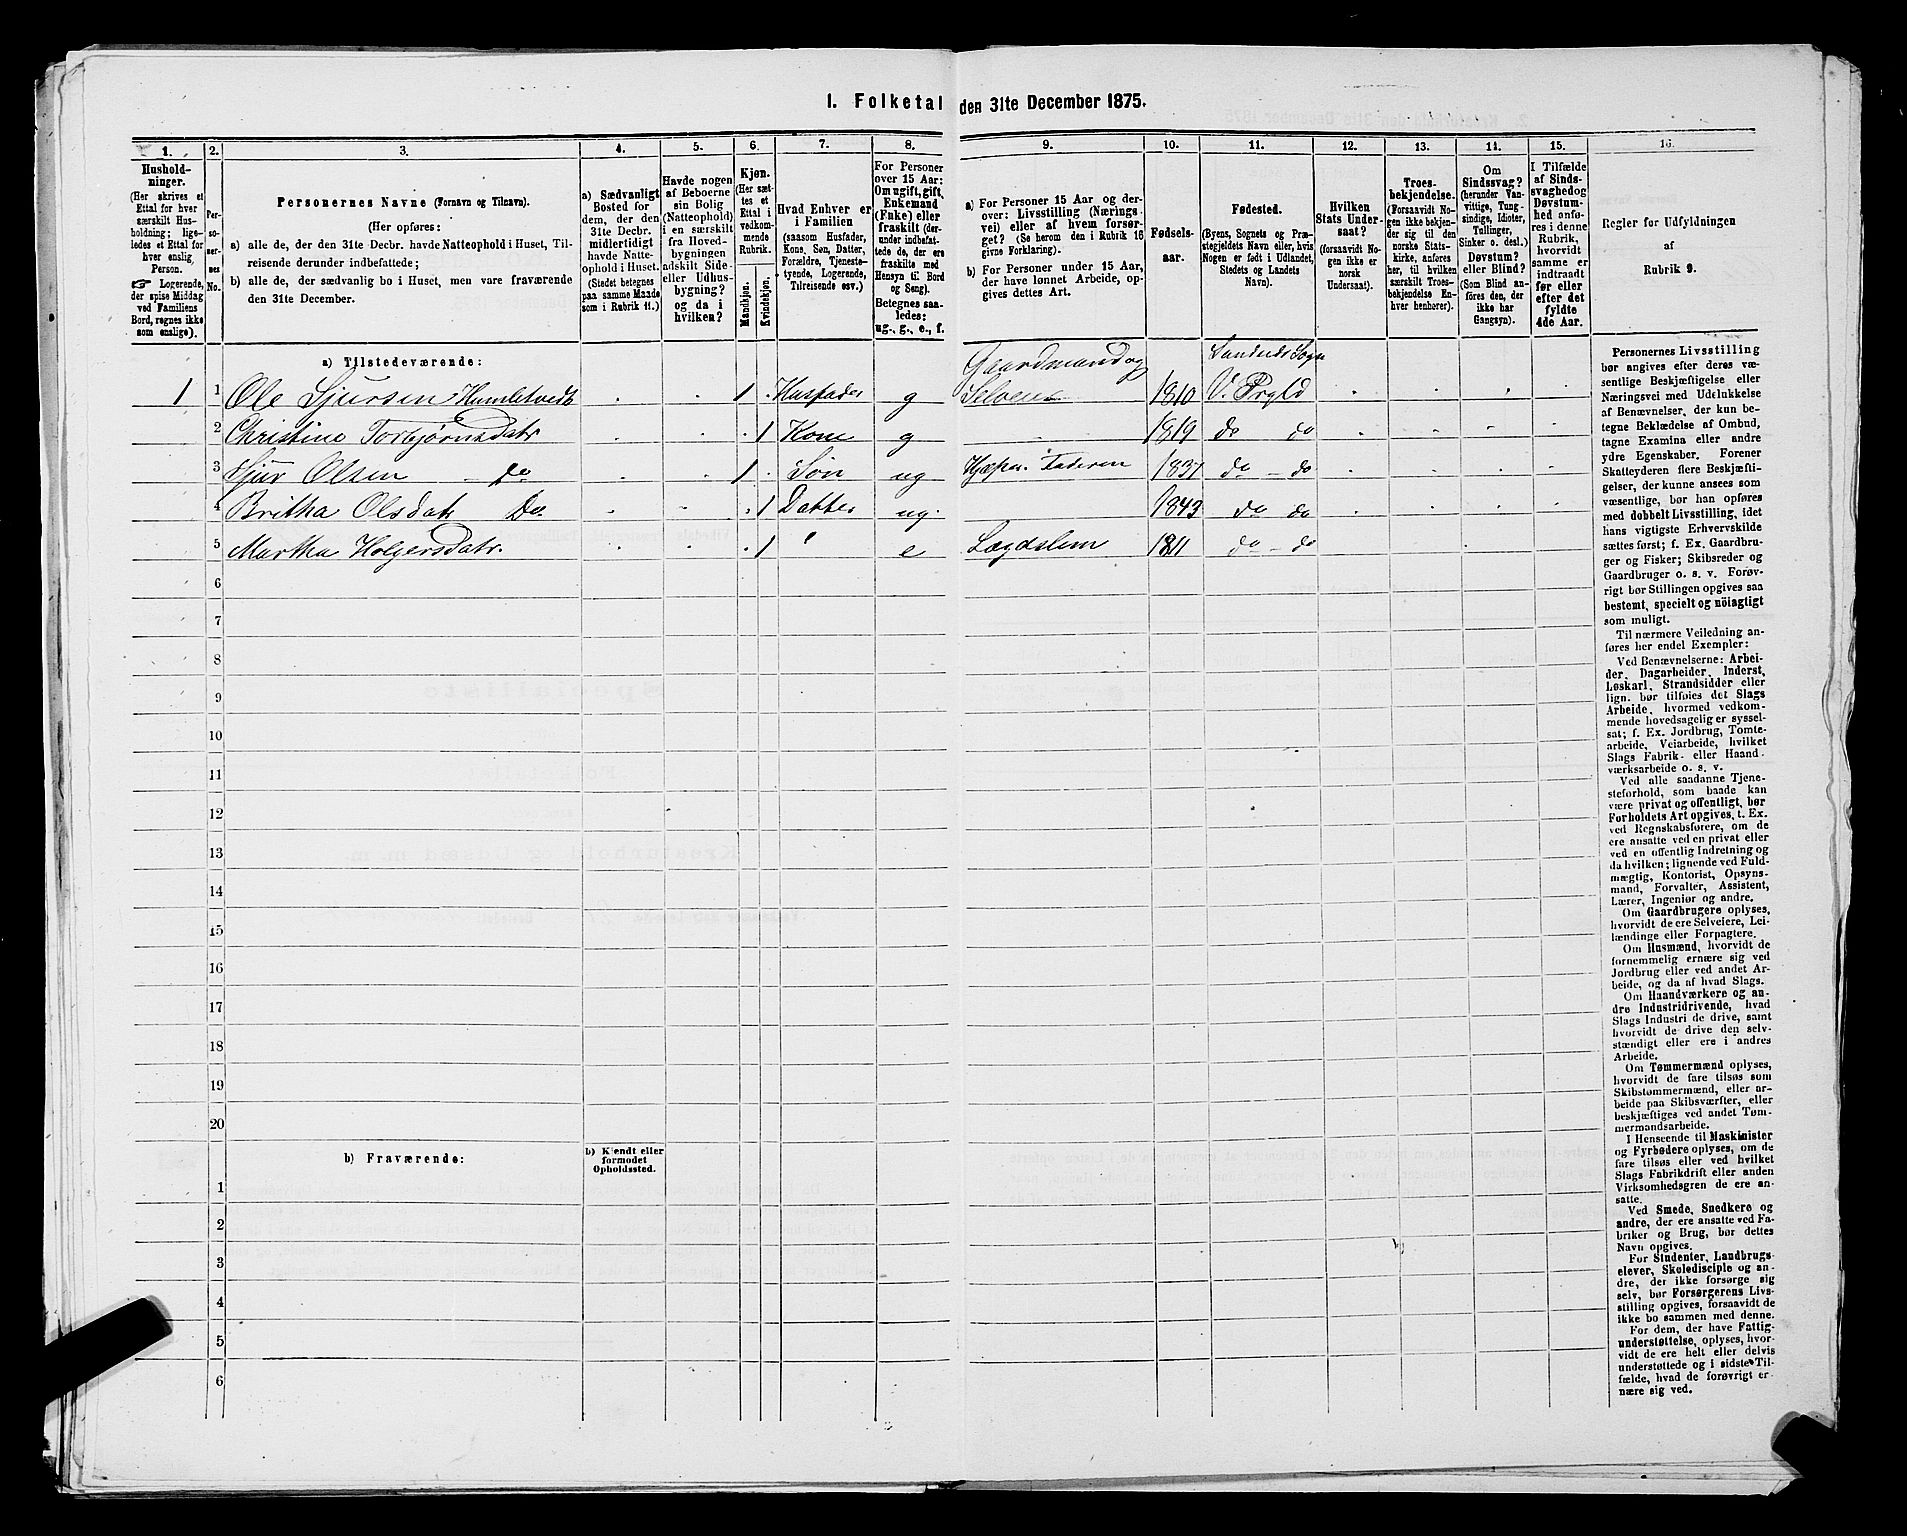 I. Folketal den 31te December 1875.
1. 2. 3. 4. 5. 6. 7. 8. 9. 10. 11. 12. 13. 14. 15. 16.
Husholdninger.
(Her skrives et
Ettal for hver
særskilt Husholdning; ligeledes
et Ettal for
hver enslig
Person.
☞ Logerende,
der spise Middag
ved Familiens
Bord, regnes ikke
som enslige).
Personernes No.
Personernes Navne (Fornavn og Tilnavn).
(Her opføres:
a) alle de, der den 31te Decbr. havde Natteophold i Huset, Tilreisende
derunder indbefattede;
b) alle de, der sædvanlig bo i Huset, men vare fraværende
den 31te December.
a) Sædvanligt
Bosted for
dem, der den
31te Decbr.
midlertidigt
havde Natteophold
i Huset.
(Stedet betegnes
paa samme Maade
som i Rubrik 11.)
Havde nogen
af Beboerne
sin Bolig
(Natteophold)
i en særskilt
fra Hovedbygningen
adskilt Side-
eller Udhusbygning?
og da i
hvilken?
Kjøn.
(Her sættes
et
Ettal i
vedkommende
Rubrik.
Mandkjøn.
Kvindekjøn.
Hvad Enhver er
i Familien
(saasom Husfader,
Kone, Søn, Datter,
Forældre, Tjenestetyende,
Logerende,
Tilreisende osv.)
For Personer
over 15 Aar:
Om ugift, gift,
Enkemand
(Enke) eller
fraskilt (derunder
indbefattede
de, der ere
fraskilte med
Hensyn til Bord
og Seng).
Betegnes saaledes:
ug., g., e., f.
a) For Personer 15 Aar og derover:
Livsstilling (Næringsvei)
eller af hvem forsørget?
(Se herom den i Rubrik 16
givne Forklaring).
b) For Personer under 15 Aar,
der have lønnet Arbeide, opgives
dettes Art.
Fødselsaar.
Fødested.
(Byens, Sognets og Præstegjeldets
Navn eller, hvis
Nogen er født i Udlandet,
Stedets og Landets
Navn).
Hvilken
Stats Undersaat?
(forsaavidt Nogen
ikke er
norsk
Undersaat).
Troesbekjendelse.
(Forsaavidt Nogen
ikke bekjender
sig til den
norske Statskirke,
anføres
her, til hvilken
særskilt Troesbekjendelse
Enhver
henhører).
Om
Sindssvag?
(herunder Vanvittige,
Tungsindige,
Idioter,
Tullinger,
Sinker o. desl.)
Døvstum?
eller Blind?
(Som Blind anføres
den, der
ikke har
Gangsyn).
I Tilfælde
af Sindssvaghed
og
Døvstumhed
anføres
i denne
Rubrik,
hvorvidt
samme er
indtraadt
før eller
efter det
fyldte
4de Aar.
Regler for Udfyldningen
af
Rubrik 9.
a) Tilstedeværende:
1 1 Ole Sjursen Humletvedt 1 Husfader g Gaardmand og Selveier 1810 Sandeids Sogn V. Prgld
2 Christine Torbjørnsdatr 1 Kone g 1819 do do
3 Sjur Olsen do 1 Søn ug Hjælper Faderen 1837 do do
4 Britha Olsdatr Do. 1 Datter ug. 1843 do do
5 Martha Holgersdatr. 1 " e Lægdslem 1811 do do
6
7
8
9
10
11
12
13
14
15
16
17
18
19
20
b) Fraværende:
b) Kjendt eller
formodet
Opholdssted.
1
2
3
4
5
6
Personernes Livsstilling
bør angives efter deres væsentlige
Beskjæftigelse eller
Næringsvei med Udelukkelse
af Benævnelser, der kun betegne
Beklædelse af Ombud,
tagne Examina eller andre
ydre Egenskaber. Forener
Skatteyderen flere Beskjæftigelser,
der kunne ansees som
væsentlige, bør han opføres
med dobbelt Livsstilling, idet
hans vigtigste Erhvervskilde
sættes først; f. Ex. Gaardbruger
og Fisker; Skibsreder og
Gaardbruger o. s. v. Forøvrigt
bør Stillingen opgives saa
bestemt, specielt og nöiagtigt
som muligt.
Til nærmere Veiledning anføres
her endel Exempler:
Ved Benævnelserne: Arbeider,
Dagarbeider, Inderst,
Løskarl, Strandsidder eller
lign. bør tilføies det Slags
Arbeide, hvormed vedkommende
hovedsagelig er sysselsat;
f. Ex. Jordbrug, Tomtearbeide,
Veiarbeide, hvilket
Slags Fabrik- eller Haandværksarbeide
o. s. v.
Ved alle saadanne Tjenesteforhold,
som baade kan
være privat og offentligt, bør
Forholdets Art opgives, t. Ex.
ved Regnskabsførere, om de
ere ansatte ved en privat eller
ved en offentlig Indretning og
da hvilken; lignende ved Fuldmægtig,
Kontorist, Opsynsmand,
Forvalter, Assistent,
Lærer, Ingeniør og andre.
Om Gaardbrugere oplyses,
hvorvidt de ere Selveiere, Leilændinge
eller Forpagtere.
Om Husmænd, hvorvidt de
fornemmelig ernære sig ved
Jordbrug eller ved andet Arbeide,
og da af hvad Slags.
Om Haandværkere og andre
Industridrivende, hvad
Slags Industri de drive, samt
hvorvidt de drive den selvstændigt
eller ere i andres
Arbeide.
Om Tømmermænd oplyses,
hvorvidt de fare tilsøs som
Skibstømmermænd, eller arbeide
paa Skibsværfter, eller
beskjæftiges ved andet Tømmermandsarbeide.
I Henseende til Maskinister
og Fyrbødere oplyses, om de
fare tilsøs eller ved hvilket
Slags Fabrikdrift eller anden
Virksomhedsgren de ere ansatte.
Ved Smede, Snedkere og
andre, der ere ansatte ved Fabriker
og Brug, bør dettes
Navn opgives.
For Studenter, Landbrugselever,
Skoledisciple og andre,
der ikke forsørge sig
selv, bør Forsørgerens Livsstilling
opgives, forsaavidt de
ikke bo sammen med denne.
For dem, der have Fattigunderstøttelse,
oplyses, hvorvidt
de ere helt eller delvis
understøttede og i sidste Tilfælde,
hvad de forøvrigt ernære
sig ved.